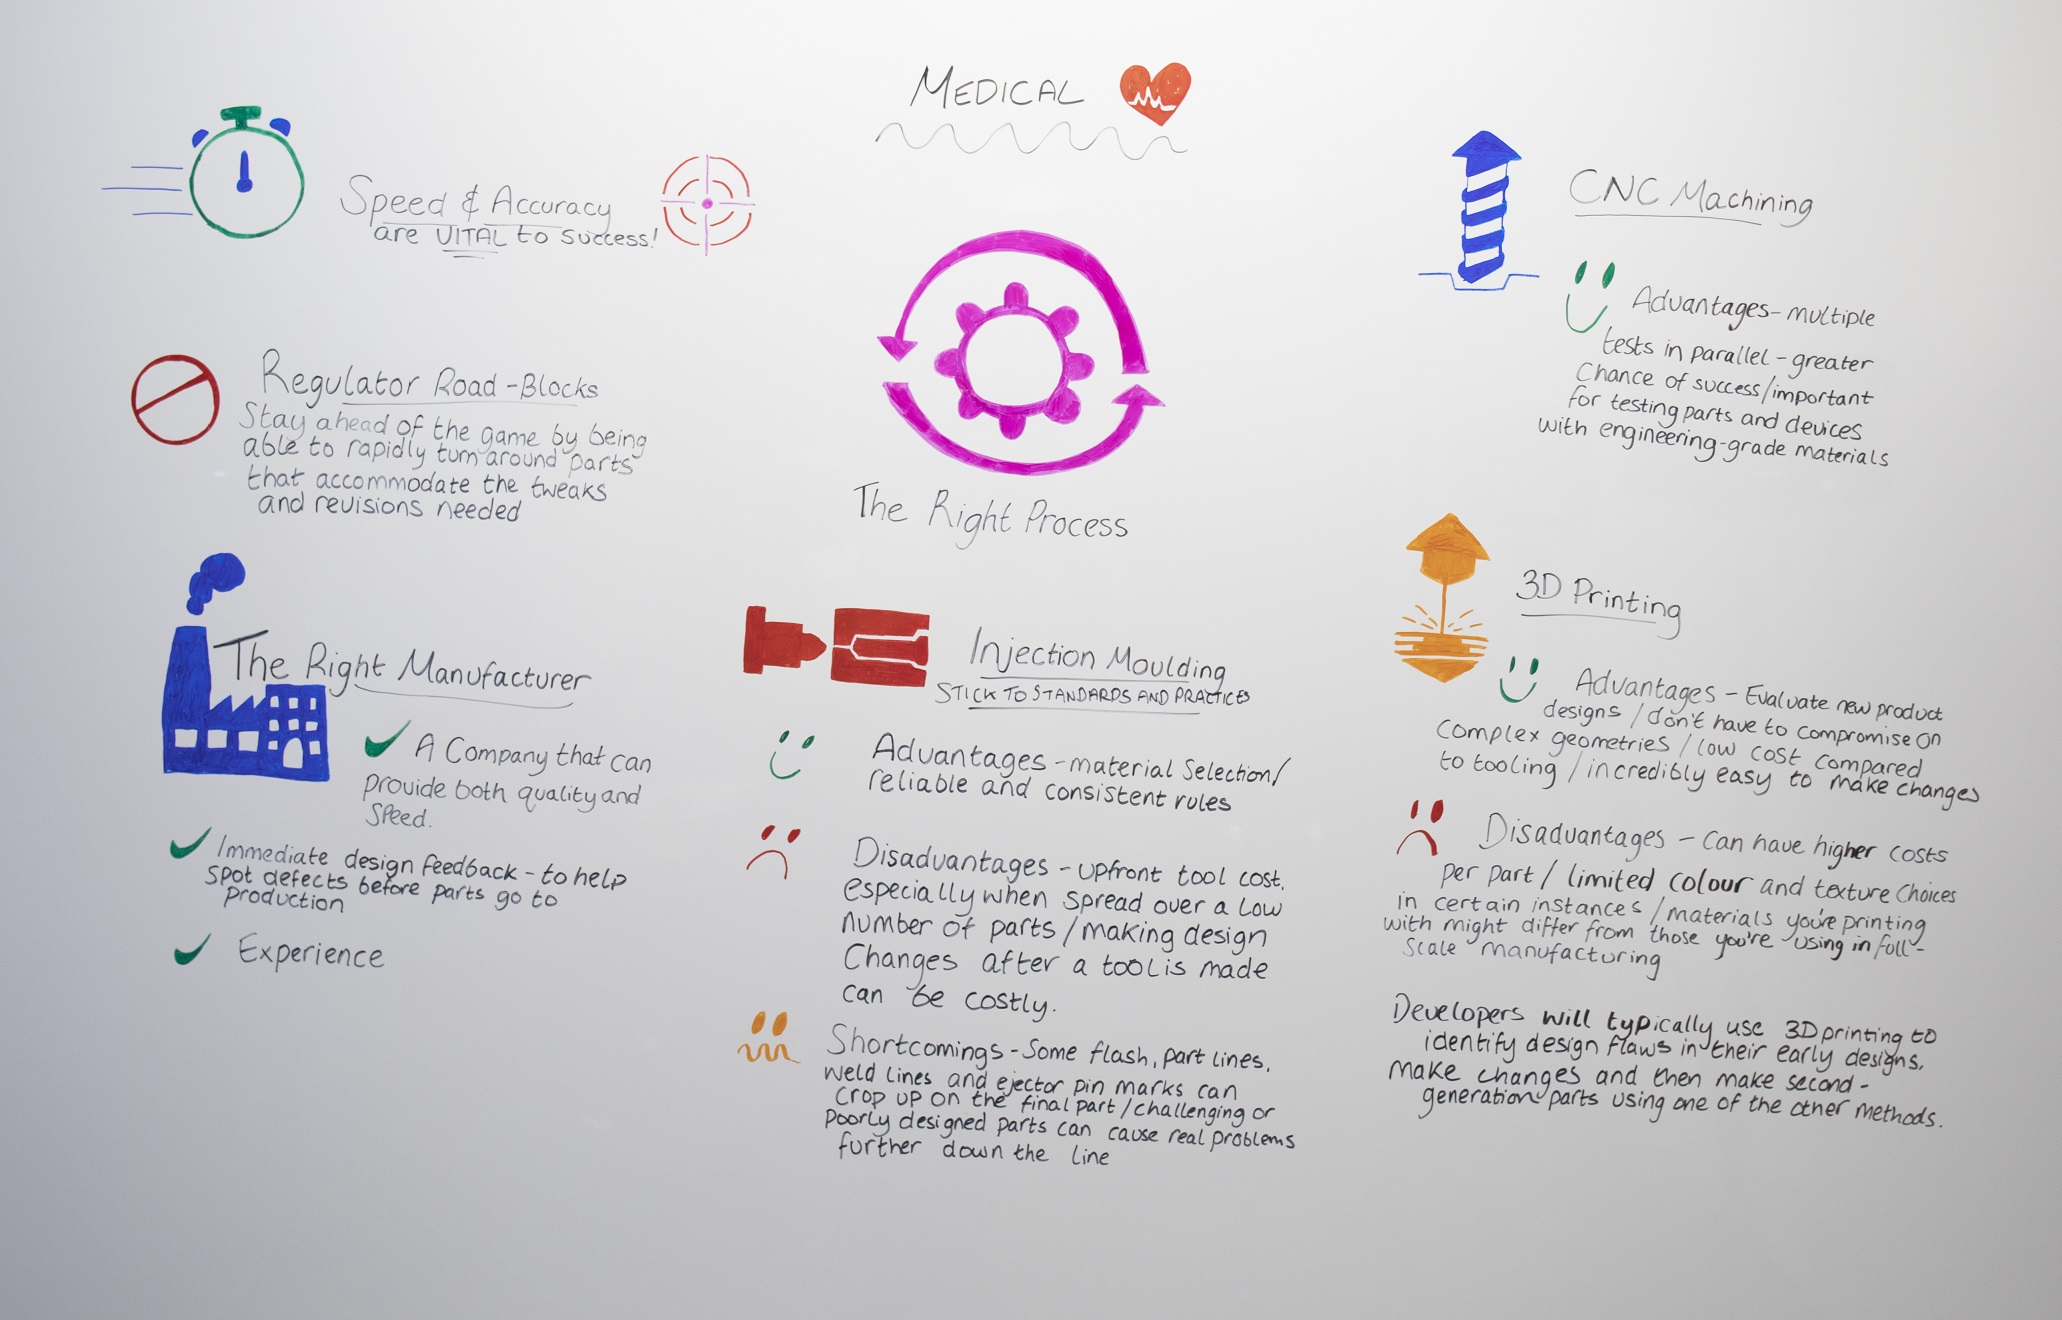 MEDICAL
Speed & Accuracy
are VITAL to success!
Regulator Road-Blocks
Stay ahead of the game by being
able to rapidly turn around parts
that accommodate the tweaks
and revisions needed
The Right Manufacturer
A Company that can
provide both quality and
speed.
Immediate design feedback - to help
spot defects before parts go to
production
Experience
The Right Process
Injection Moulding
STICK TO STANDARDS AND PRACTICES
Advantages - material selection/
reliable and consistent rules
Disadvantages - upfront tool cost,
especially when spread over a low
number of parts / making design
Changes after a tool is made
can be costly.
Shortcomings - Some flash, part lines,
weld lines and ejector pin marks can
crop up on the final part / challenging or
poorly designed parts can cause real problems
further down the line
CNC Machining
Advantages - multiple
tests in parallel - greater
chance of success/important
for testing parts and devices
with engineering-grade materials
3D Printing
Advantages - Evaluate new product
designs / don't have to compromise on
complex geometries / low cost compared
to tooling / incredibly easy to make changes
Disadvantages - Can have higher costs
per part / limited colour and texture choices
in certain instances / materials you're printing
with might differ from those you're using in full-
scale manufacturing
Developers will typically use 3D printing to
identify design flaws in their early designs,
make changes and then make second-
generation parts using one of the other methods.